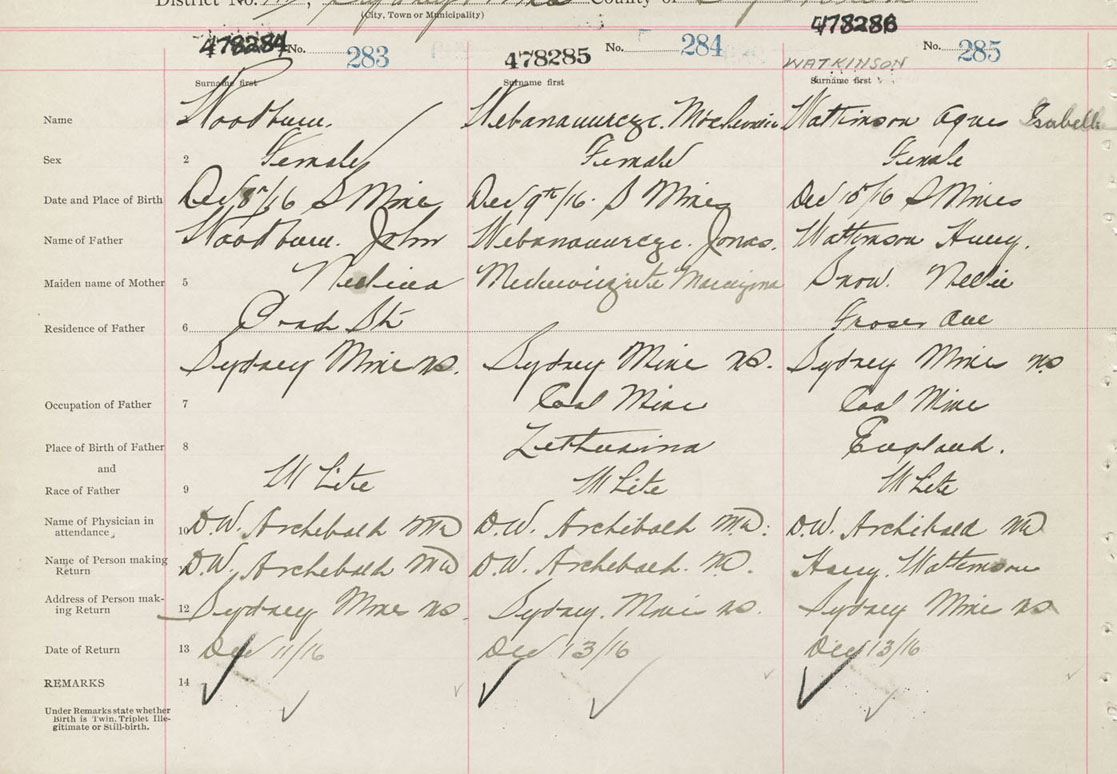 District No. County of
(City, Town or Municipality)
478284 No. 283 478285 No. 284 478286 No. 285
WATKINSON
Surname first Surname first Surname first
Name Woodburn. Webanauurczc. Watkinson Agnes Isabella
Sex 2 Female Female Female
Date and Place of Birth Dec 8th/16 S Mines Dec 9th/16. S Mines Dec 10/16 S Mines
Name of Father Woodburn. John Webanauurczc. Jonas. Watkinson Harry.
Maiden name of Mother 5 Snow. Nellie
Residence of Father 6 St Fraser Ave
Sydney Mine NS. Sydney Mine NS. Sydney Mines NS
Occupation of Father 7 Coal Mine Coal Mine
Place of Birth of Father 8 England.
and
Race of Father 9 White White White
Name of Physician in
attendance, 10 D.W. Archibald MD D.W. Archibald MD. D.W. Archibald MD
Name of Person making
Return D.W. Archibald MD D.W. Archibald. MD. Harry. Watkinson
Address of Person mak-
ing Return 12 Sydney Mines NS. Sydney. Mines NS. Sydney Mine NS
Date of Return 13 Dec 11/16 Dec 13/16 Dec 13/16
REMARKS 14
Under Remarks state whether
Birth is Twin, Triplet Ille-
gitimate or Still-birth.